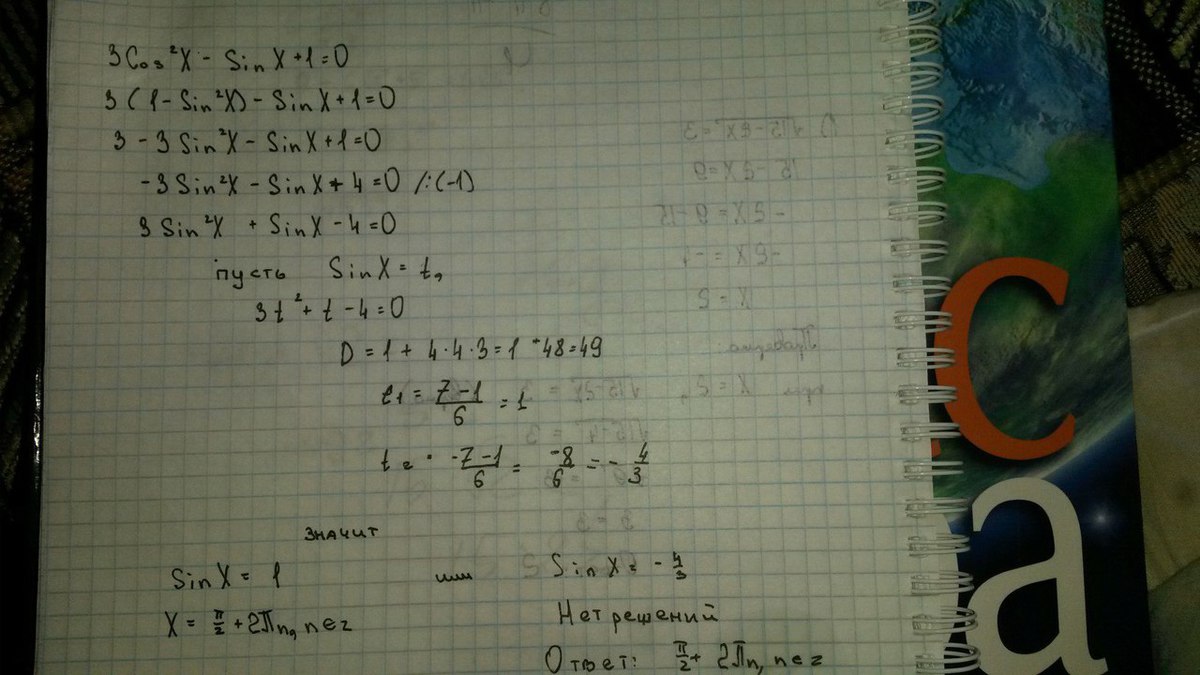 3Cos²X - SinX+1=0
3(1-Sin²X) - SinX+1=0
3 - 3Sin²X - SinX+1=0
-3Sin²X - SinX+4=0 /:(-1)
3Sin²X + SinX-4=0
пусть SinX=t,
3t²+t-4=0
D=1+4·4·3=1+48=49
t₁ = 7-1/6 = 1
t₂ = -7-1/6 = -8/6 = -4/3
значит
SinX = 1 или SinX = -4/3
X = π/2 + 2πn, n∈z Нет решений
Ответ: π/2 + 2πn, n∈z
с
а